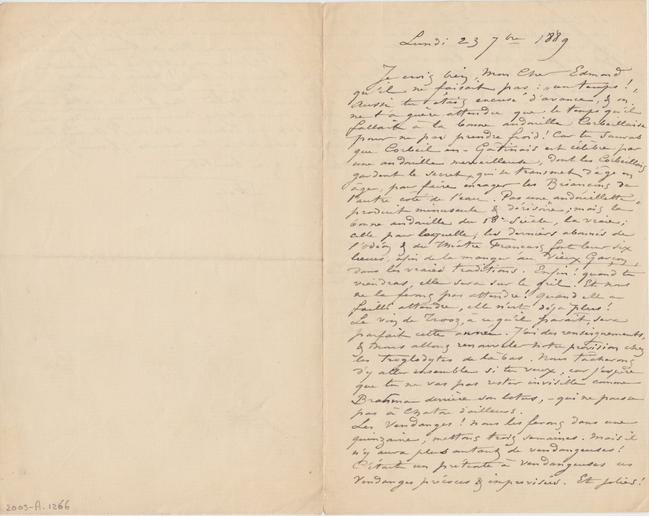 Lundi 23 7bre 1889
Je crois bien, Mon Cher Edmond
qu'il ne faisait pas : un temps !,
Aussi tu étais excusé d'avance, & on
ne t'a guère attendu que le temps qu'il
fallait à la bonne andouille Corbeillaise
pour ne pas prendre froid ! Car tu sauras
que Corbeil en-Gatinais est célèbre par
une andouille merveilleuse, dont les Corbeillois
gardent le secret, qui se transmet d'âge en
âge, pour faire enrager les de
l'autre coté de l'eau. Pas une andouillette,
produit minuscule & dérisoire ; mais la
bonne andouille du 18e Siècle, la vraie ;
celle par laquelle, les derniers abonnés de
l'Odéon & du Théâtre Français font leur six
lieues, afin de la manger au Vieux Garçon,
dans les vraies traditions. Enfin ! quand tu
viendras, elle sera sur le gril. Et nous
ne la ferons pas attendre ! Quand elle a
failli attendre, elle n'est déjà plus !
Le vin de Trooz, à ce qu'il parait sera
parfait cette année. J'ai des renseignements,
& nous allons renouveler notre provision chez
les troglodytes de là-bas. Nous tacherons
d'y aller ensemble si tu veux, car j'espère
que tu ne vas pas rester invisible comme
Brahma derrière son lotus, - qui ne pousse
pas à Chatou d'ailleurs.
Les Vendanges ! nous les ferons dans une
quinzaine, mettons trois semaines. Mais il
n'y aura plus autant de vendangeuses !
C'était un prétexte à vendangeuses ces
vendanges précoces & improvisées. Et jolies !
2003-A.1266